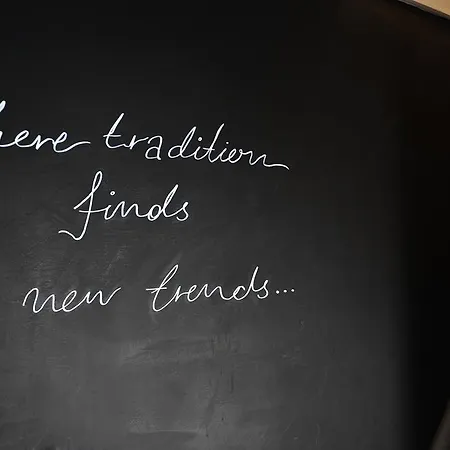 here tradition
finds
new trends...